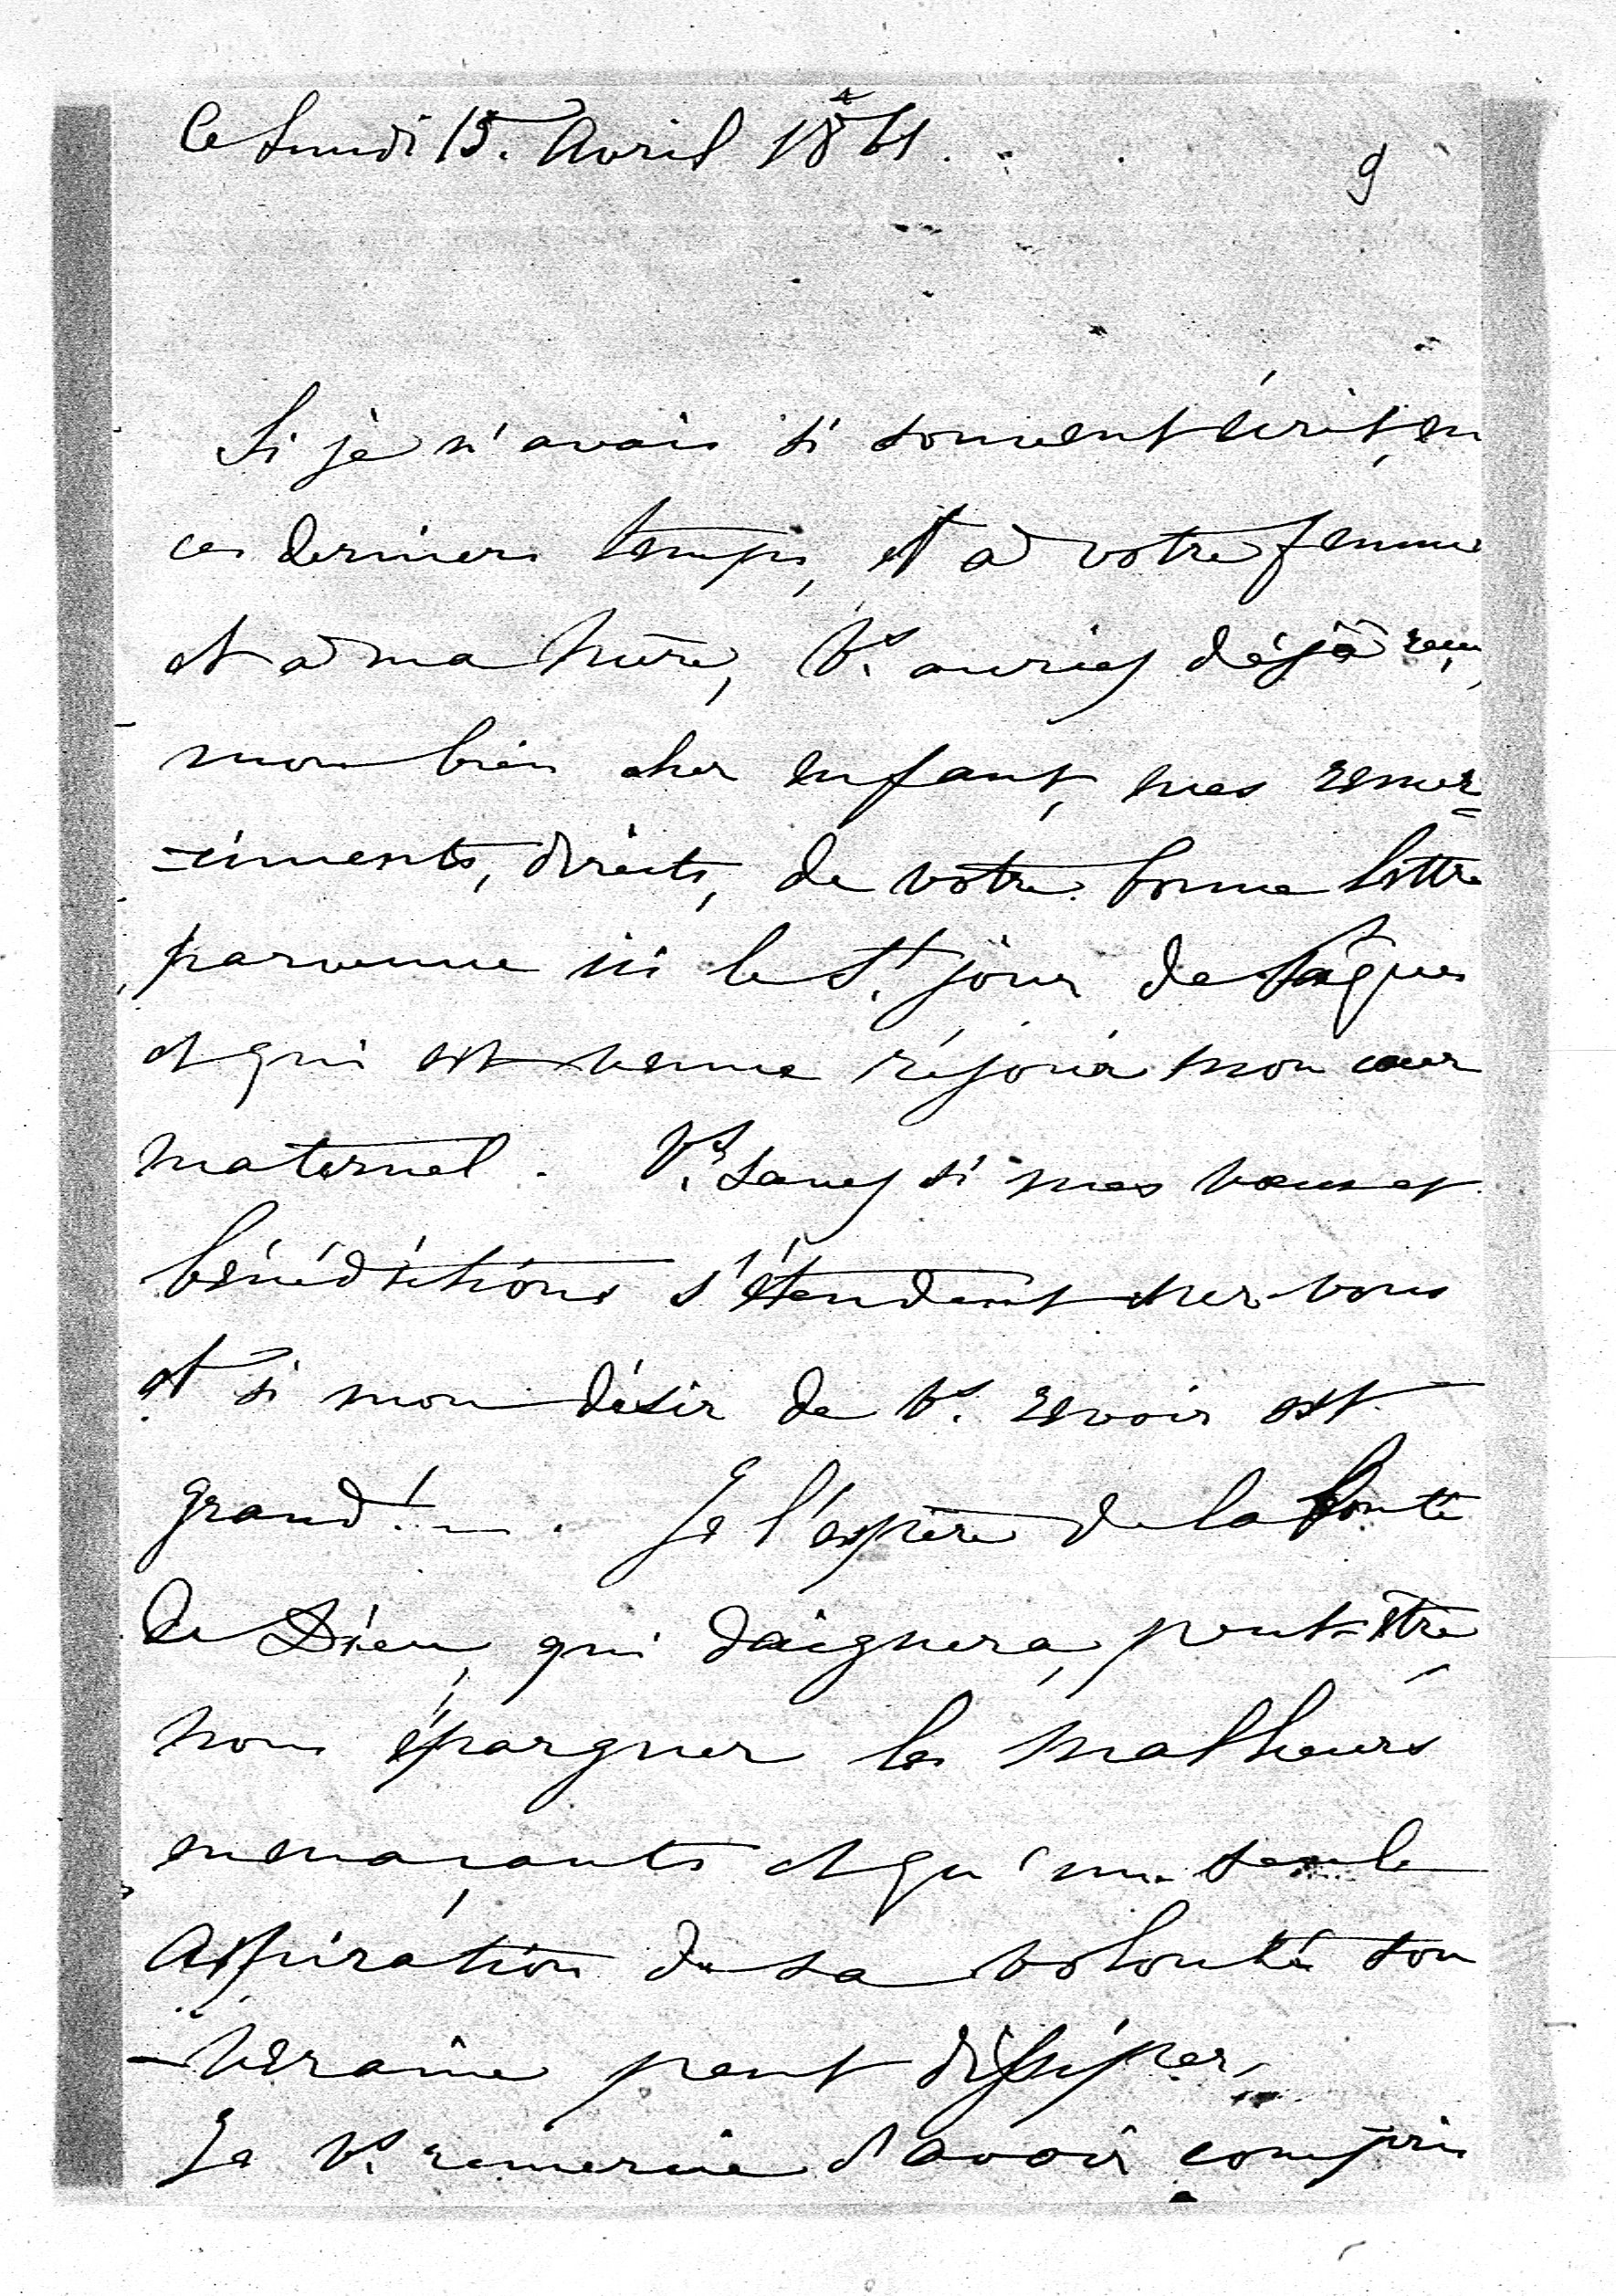 Ce Lundi 15. Avril 1861.
9
Si je n'avais si souvent écrit, en
ces derniers temps, et à votre femme
et à ma Mère, Vs. auriez déjà reçu,
mon bien cher enfant, mes remer=
=cîments, directs, de votre bonne lettre
parvenue ici le St. jour de Pâques
et qui est venue réjouir mon cœur
maternel. Vs. savez si mes vœux et
bénédictions s'étendent sur vous
et si mon désir de Vs. revoir est
grand!... Je l'espère de la Bonté
de Dieu, qui daignera, peut-être,
nous épargner les malheurs
menaçants et qu'une seule
aspiration de sa volonté sou
-veraine peut dissiper.
Je Vs. remercie d'avoir compris